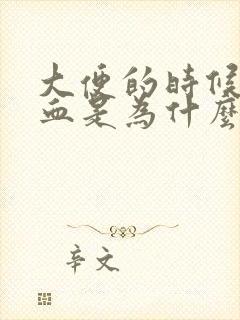 大便的時候
血是為什麼
辛文